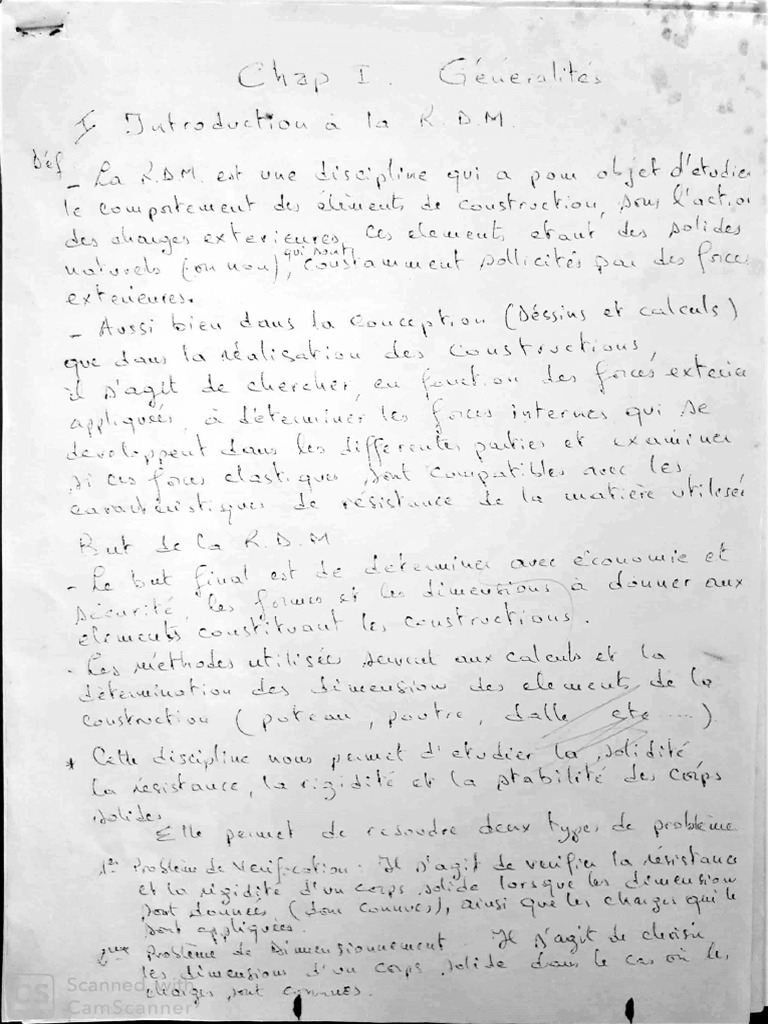 Chap I. Généralités
I Introduction à la R.D.M.
Déf
- La R.D.M. est une discipline qui a pour objet d'étudier
le comportement des éléments de construction, sous l'action
des charges exterieures. Ces elements etant des solides
naturels (ou non), qui sont constamment sollicités par des forces
exterieures.
- Aussi bien dans la conception (Déssins et calculs)
que dans la réalisation des constructions,
il s'agit de chercher, en fonction des forces exterieu
appliquées, à déterminer les forces internes qui se
developpent dans les differentes parties et examiner
si ces forces elastiques sont compatibles avec les
caractéristiques de résistance de la matière utilisée
But de la R.D.M
- Le but final est de determiner avec économie et
sécurité, les formes et les dimensions à donner aux
elements constituant les constructions.
- Les méthodes utilisées servent aux calculs et la
détermination des dimension des elements de la
construction (poteau, poutre, dalle etc ....)
* Cette discipline nous permet d'etudier la solidité
la résistance, la rigidité et la stabilité des corps
solides
Elle permet de resoudre deux types de problème
1er Problème de Verification : Il s'agit de verifier la résistance
et la rigidité d'un corps solide lorsque les dimension
sont données (donc connues), ainsi que les charges qui le
sont appliquées.
2eme Problème de Dimensionnement Il s'agit de choisir
les dimensions d'un corps solide dans le cas où les
charges sont connues.
CS Scanned with
CamScanner